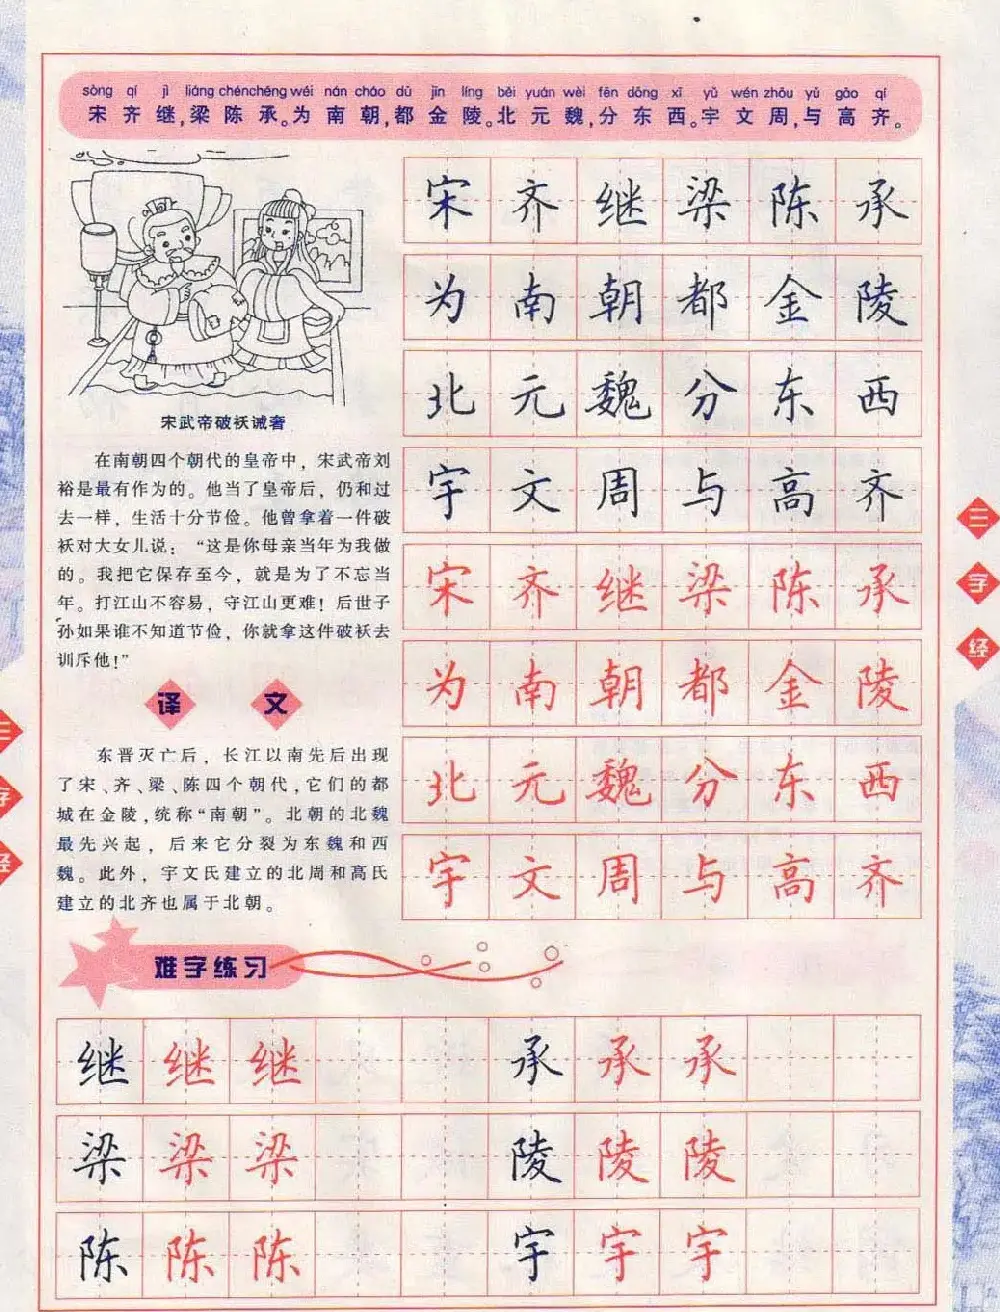 sòng qí jì liáng chén chéng wéi nán cháo dū jīn líng běi yuán wèi fēn dōng xī yǔ wén zhōu yǔ gāo qí
宋齐继,梁陈承。为南朝,都金陵。北元魏,分东西。宇文周,与高齐。
宋武帝破袄诫奢
在南朝四个朝代的皇帝中，宋武帝刘
裕是最有作为的。他当了皇帝后，仍和过
去一样，生活十分节俭。他曾拿着一件破
袄对大女儿说：“这是你母亲当年为我做
的。我把它保存至今，就是为了不忘当
年。打江山不容易，守江山更难！后世子
孙如果谁不知道节俭，你就拿这件破袄去
训斥他！”
译文
东晋灭亡后，长江以南先后出现
了宋、齐、梁、陈四个朝代,它们的都
城在金陵,统称“南朝”。北朝的北魏
最先兴起，后来它分裂为东魏和西
魏。此外，宇文氏建立的北周和高氏
建立的北齐也属于北朝。
宋齐继梁陈承
为南朝都金陵
北元魏分东西
宇文周与高齐
宋齐继梁陈承
为南朝都金陵
北元魏分东西
宇文周与高齐
难字练习
继继继 承承承
梁梁梁 陵陵陵
陈陈陈 宇宇宇
三字经
三字经